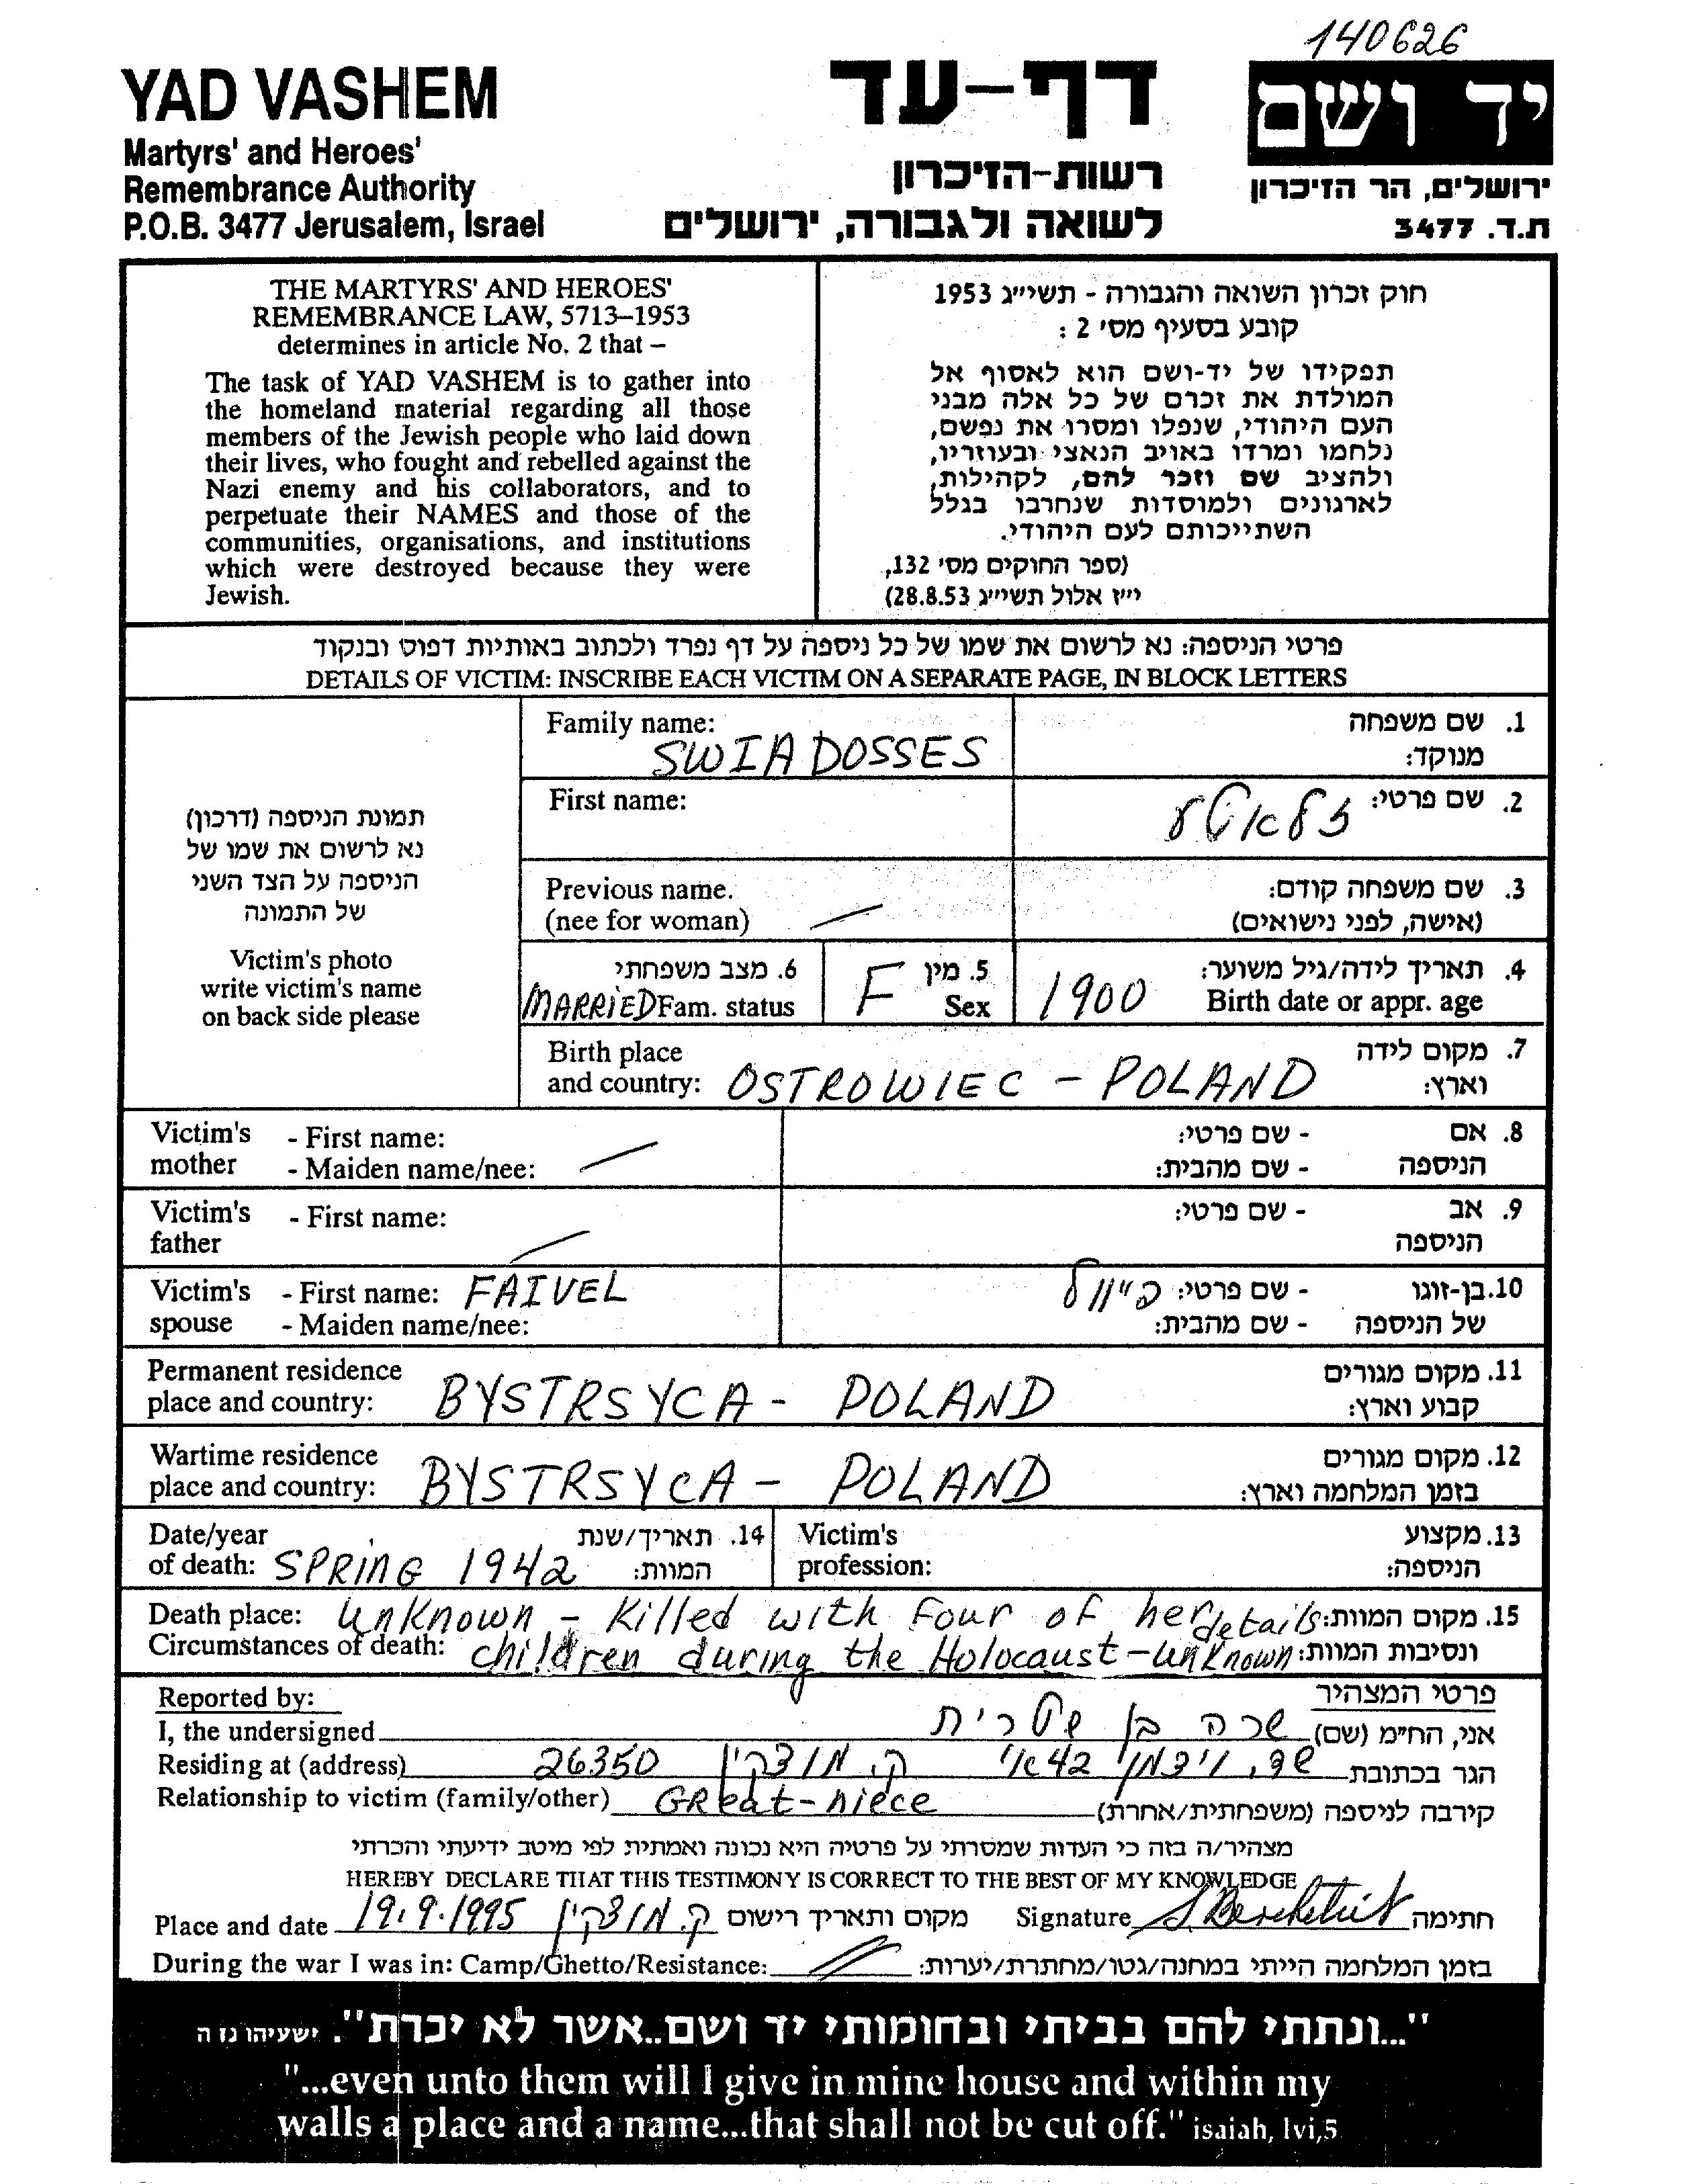 140626
YAD VASHEM
Martyrs' and Heroes'
Remembrance Authority
P.O.B. 3477 Jerusalem, Israel
דף-עד
רשות-הזיכרון
לשואה ולגבורה, ירושלים
יד ושם
ירושלים, הר הזיכרון
ת.ד. 3477
THE MARTYRS' AND HEROES'
REMEMBRANCE LAW, 5713–1953
determines in article No. 2 that –
The task of YAD VASHEM is to gather into
the homeland material regarding all those
members of the Jewish people who laid down
their lives, who fought and rebelled against the
Nazi enemy and his collaborators, and to
perpetuate their NAMES and those of the
communities, organisations, and institutions
which were destroyed because they were
Jewish.
חוק זכרון השואה והגבורה - תשי״ג 1953
קובע בסעיף מס׳ 2 :
תפקידו של יד-ושם הוא לאסוף אל
המולדת את זכרם של כל אלה מבני
העם היהודי, שנפלו ומסרו את נפשם,
נלחמו ומרדו באויב הנאצי ובעוזריו,
ולהציב שם וזכר להם, לקהילות,
לארגונים ולמוסדות שנחרבו בגלל
השתייכותם לעם היהודי.
(ספר החוקים מס׳ 132,
י״ז אלול תשי״ג 28.8.53)
פרטי הניספה: נא לרשום את שמו של כל ניספה על דף נפרד ולכתוב באותיות דפוס ובנקוד
DETAILS OF VICTIM: INSCRIBE EACH VICTIM ON A SEPARATE PAGE, IN BLOCK LETTERS
תמונת הניספה (דרכון)
נא לרשום את שמו של
הניספה על הצד השני
של התמונה
Victim's photo
write victim's name
on back side please
Family name: SWIADOSSES 1. שם משפחה
מנוקד:
First name: זלאטע 2. שם פרטי:
Previous name. 3. שם משפחה קודם:
(nee for woman) (אישה, לפני נישואים)
6. מצב משפחתי 5. מין 4. תאריך לידה/גיל משוער:
MARRIED Fam. status F Sex 1900 Birth date or appr. age
Birth place 7. מקום לידה
and country: OSTROWIEC - POLAND וארץ:
Victim's - First name: - שם פרטי: 8. אם
mother - Maiden name/nee: - שם מהבית: הניספה
Victim's - First name: - שם פרטי: 9. אב
father הניספה
Victim's - First name: FAIVEL - שם פרטי: פייוול 10. בן-זוגו
spouse - Maiden name/nee: - שם מהבית: של הניספה
Permanent residence 11. מקום מגורים
place and country: BYSTRSYCA - POLAND קבוע וארץ:
Wartime residence 12. מקום מגורים
place and country: BYSTRSYCA - POLAND בזמן המלחמה וארץ:
Date/year 14. תאריך/שנת Victim's 13. מקצוע
of death: SPRING 1942 המוות: profession: הניספה:
Death place: Unknown - Killed with four of her details 15. מקום המוות:
Circumstances of death: children during the Holocaust - unknown ונסיבות המוות:
Reported by: פרטי המצהיר
I, the undersigned שרה בן שטרית אני, הח״מ (שם)
Residing at (address) 26350 ק. מוצקין 42 הגר בכתובת
Relationship to victim (family/other) Great-niece קירבה לניספה (משפחתית/אחרת)
מצהיר/ה בזה כי העדות שמסרתי על פרטיה היא נכונה ואמתית לפי מיטב ידיעתי והכרתי
HEREBY DECLARE THAT THIS TESTIMONY IS CORRECT TO THE BEST OF MY KNOWLEDGE
Place and date 19.9.1995 ק. מוצקין מקום ותאריך רישום Signature חתימה
During the war I was in: Camp/Ghetto/Resistance: בזמן המלחמה הייתי במחנה/גטו/מחתרת/יערות:
"...ונתתי להם בביתי ובחומותי יד ושם..אשר לא יכרת". ישעיהו נו ה
"...even unto them will I give in mine house and within my
walls a place and a name...that shall not be cut off." isaiah, lvi,5